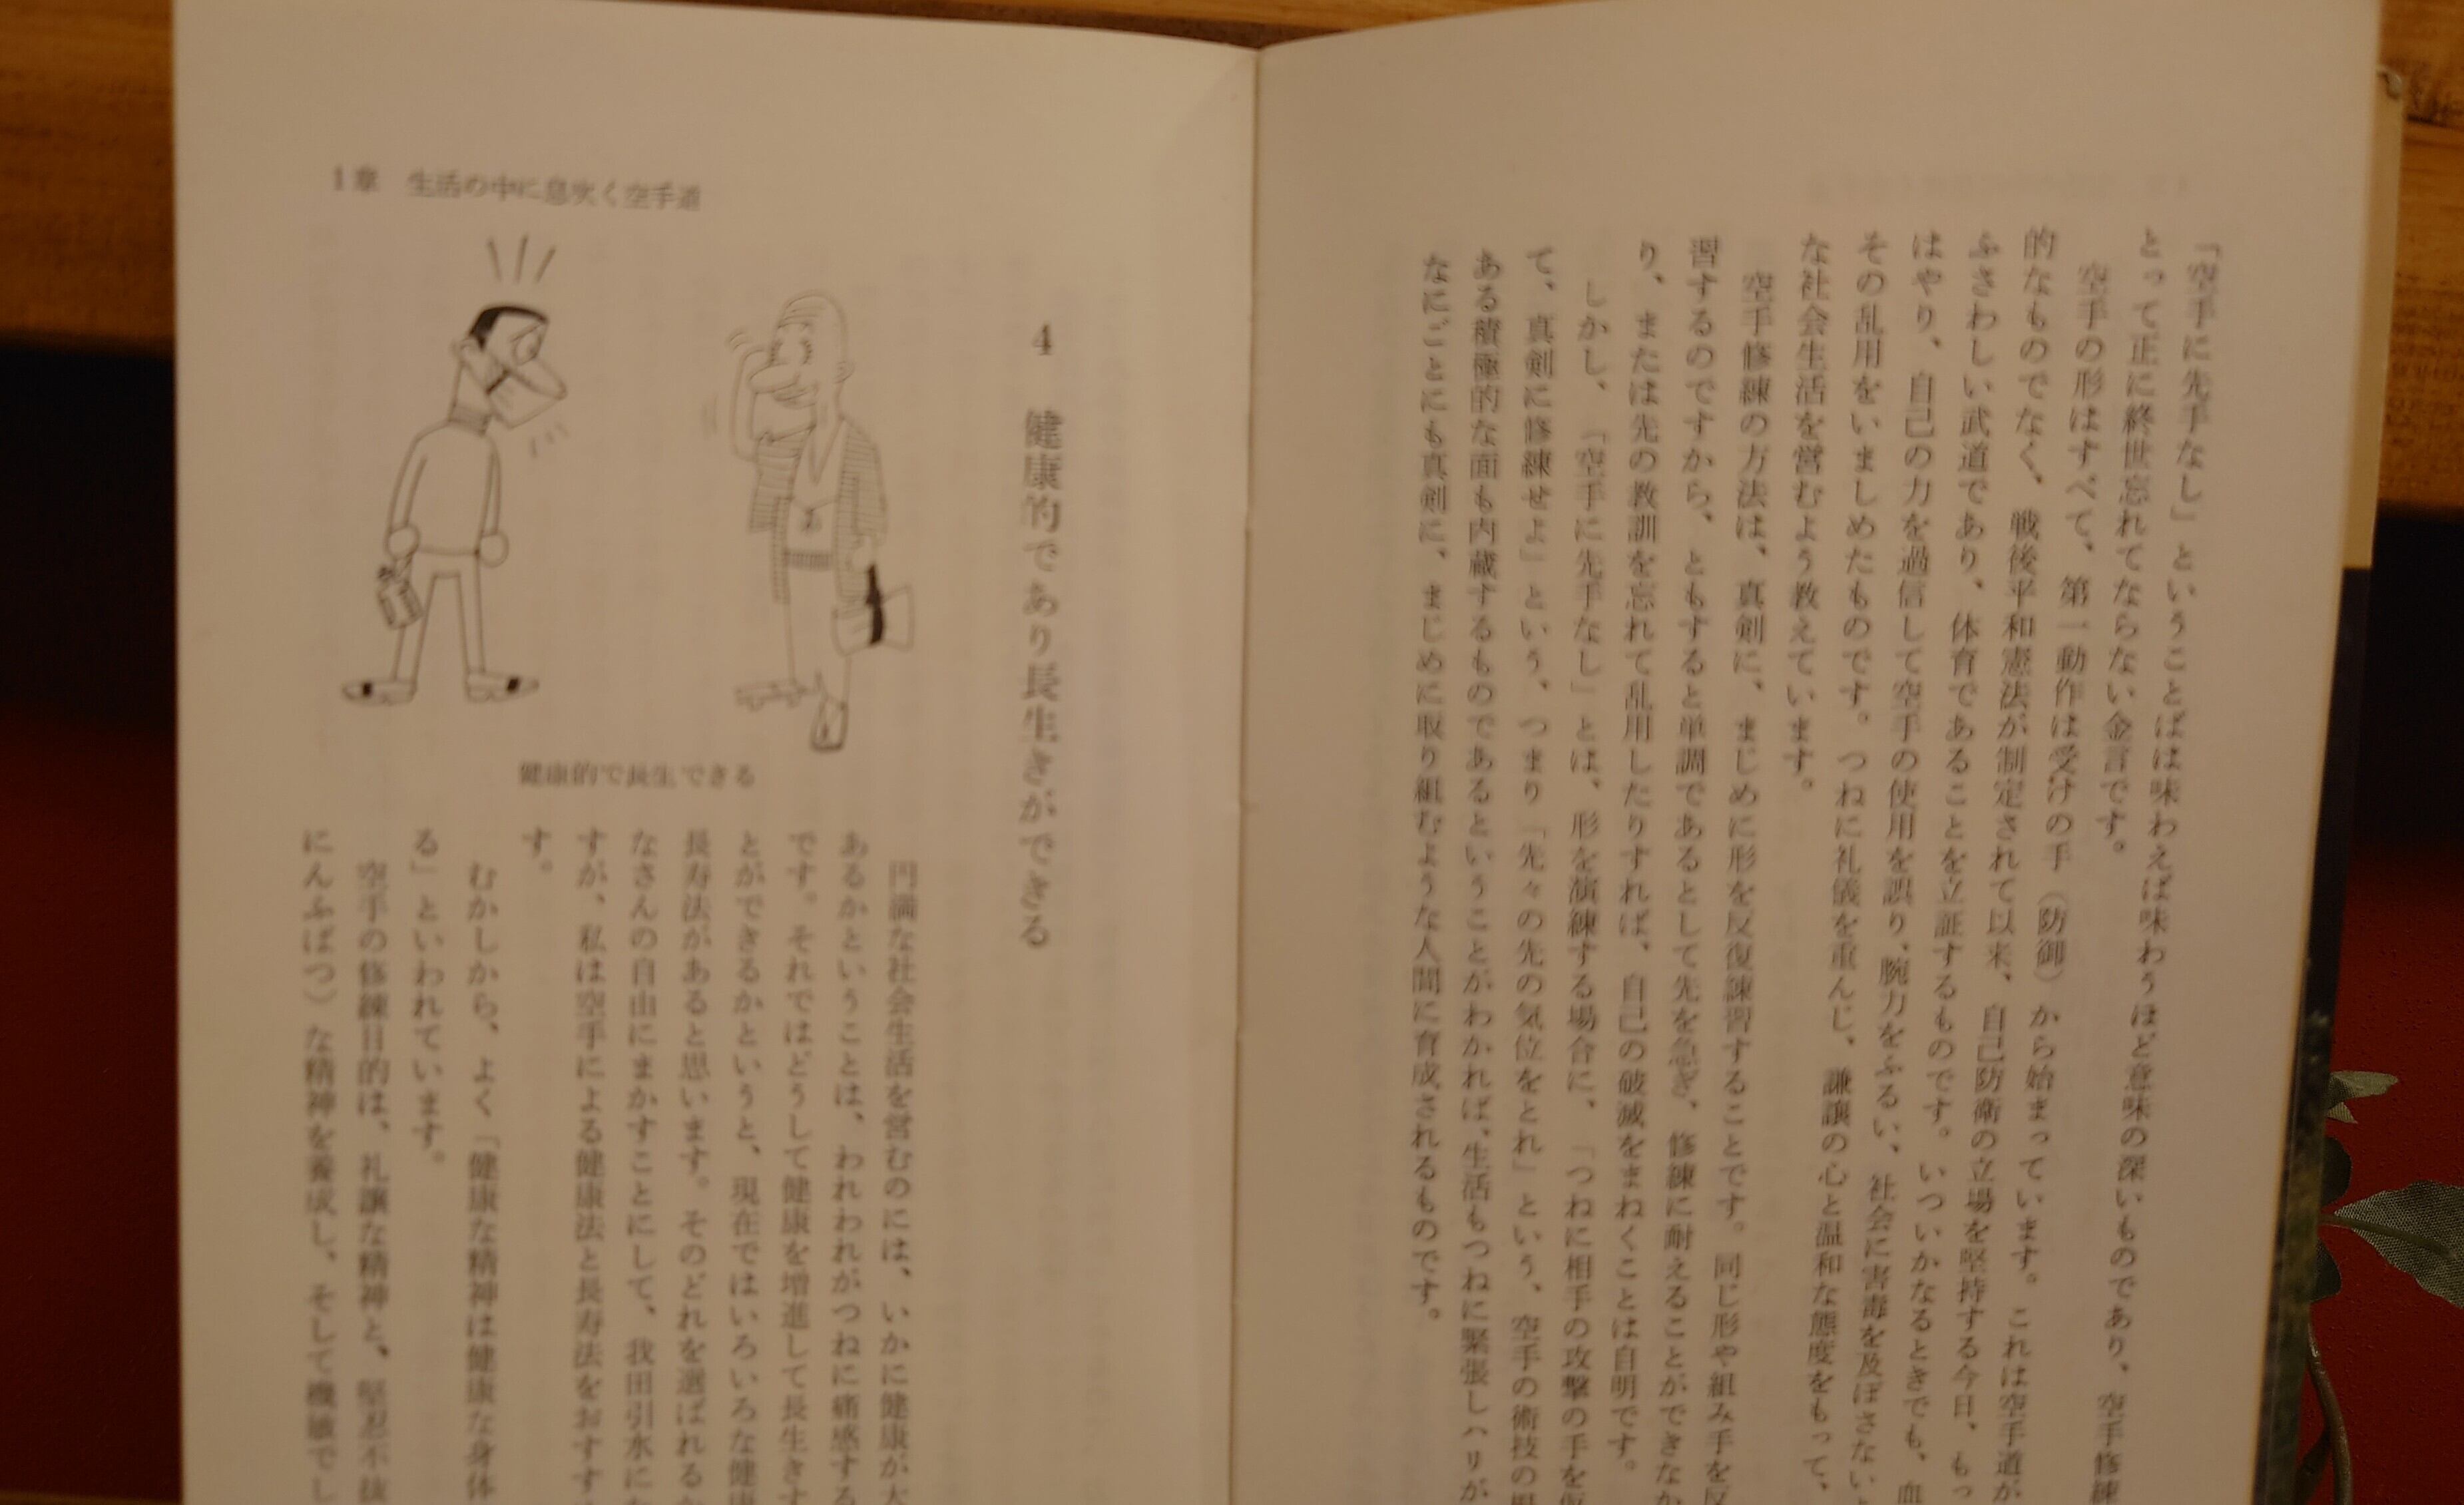 「空手に先手なし」ということばは味わえば味わうほど意味の深いものであり、空手修練
とって正に終世忘れてならない金言です。
空手の形はすべて、第一動作は受けの手（防御）から始まっています。これは空手道が
的なものでなく、戦後平和憲法が制定されて以来、自己防衛の立場を堅持する今日、もっ
ふさわしい武道であり、体育であることを立証するものです。いついかなるときでも、血
はやり、自己の力を過信して空手の使用を誤り、腕力をふるい、社会に害毒を及ぼさない
その乱用をいましめたものです。つねに礼儀を重んじ、謙譲の心と温和な態度をもって、
な社会生活を営むよう教えています。
空手修練の方法は、真剣に、まじめに形を反復練習することです。同じ形や組み手を反
習するのですから、ともすると単調であるとして先を急ぎ、修練に耐えることができなか
り、または先の教訓を忘れて乱用したりすれば、自己の破滅をまねくことは自明です。
しかし、「空手に先手なし」とは、形を演練する場合に、「つねに相手の攻撃の手を仮
て、真剣に修練せよ」という、つまり「先々の先の気位をとれ」という、空手の術技の
ある積極的な面も内蔵するものであるということがわかれば、生活もつねに緊張しハリが
なにごとにも真剣に、まじめに取り組むような人間に育成されるものです。
1章　生活の中に息吹く空手道
4　健康的であり長生きができる
健康的で長生できる
円満な社会生活を営むのには、いかに健康が大
あるかということは、われわれがつねに痛感する
です。それではどうして健康を増進して長生きす
とができるかというと、現在ではいろいろな健康
長寿法があると思います。そのどれを選ばれるか
なさんの自由にまかすことにして、我田引水に
すが、私は空手による健康法と長寿法をおすす
す。
むかしから、よく「健康な精神は健康な身体
る」といわれています。
空手の修練目的は、礼譲な精神と、堅忍不抜
にんふばつ）な精神を養成し、そして機敏でし